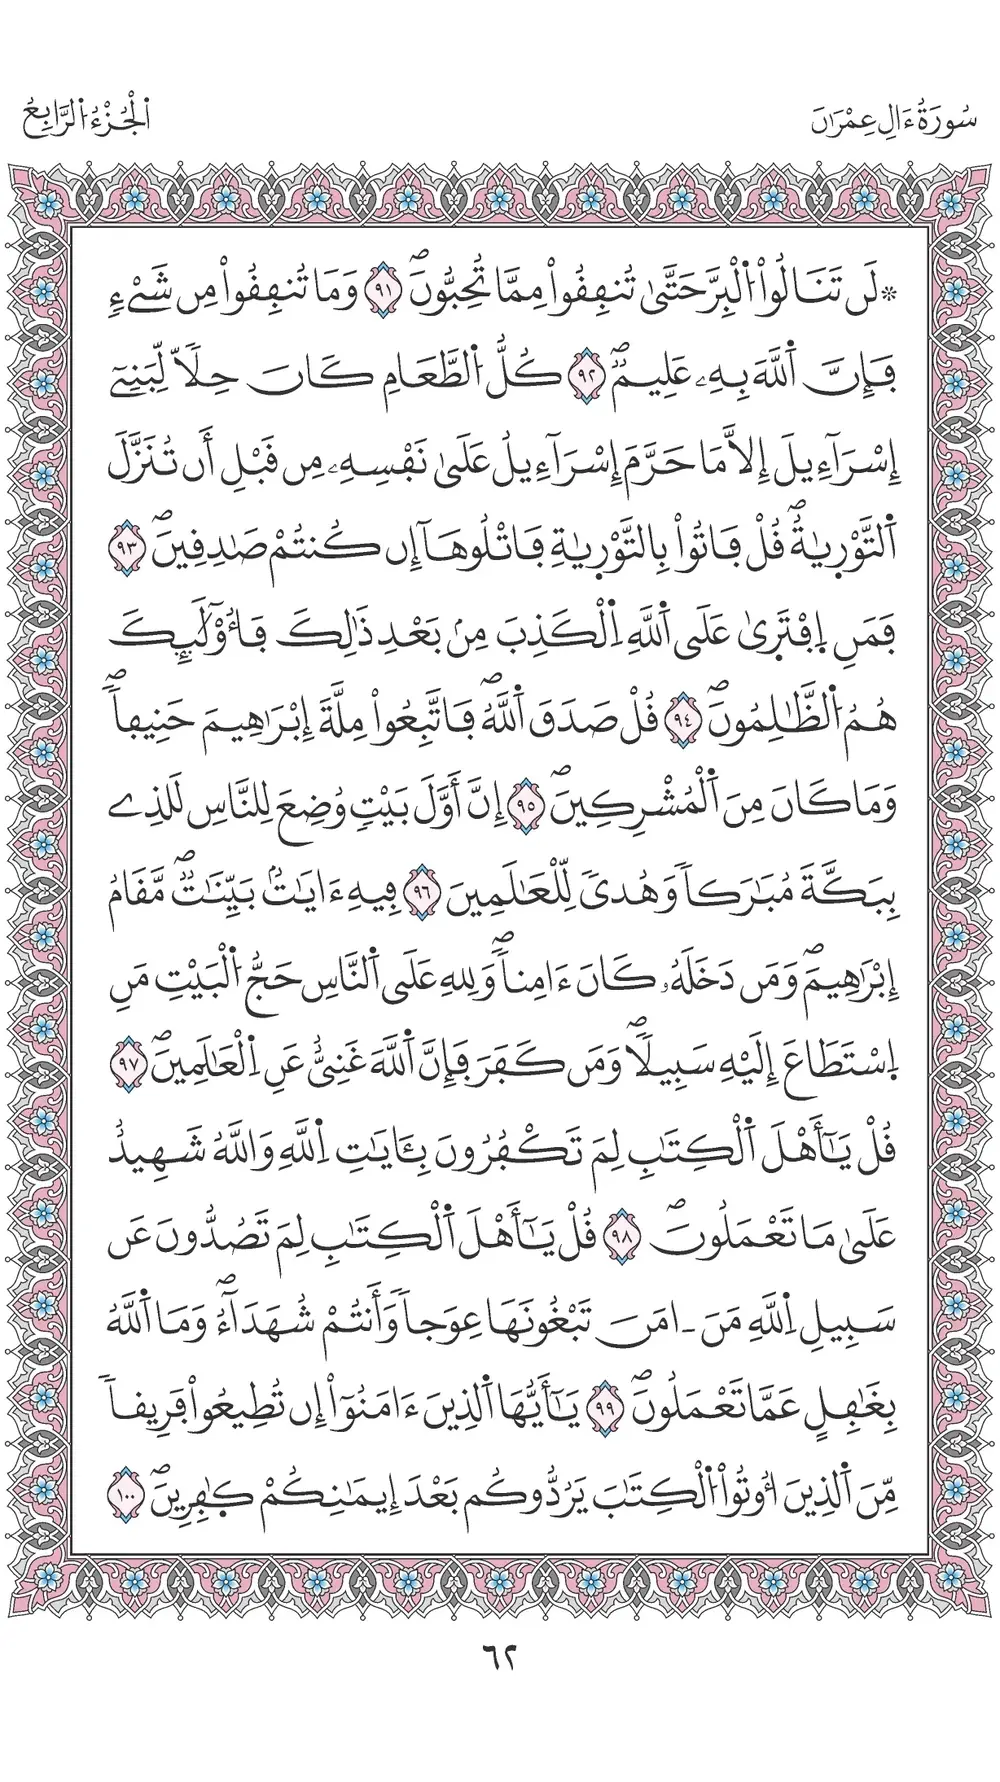 سُورَةُ ءَالِ عِمْرَٰنَ
اَ۬لْجُزْءُ اُ۬لرَّابِعُ
۞ لَن تَنَالُواْ اُ۬لْبِرَّ حَتَّيٰ تُنفِقُواْ مِمَّا تُحِبُّونَۖ ٩١ وَمَا تُنفِقُواْ مِن شَےْءٖ
فَإِنَّ اَ۬للَّهَ بِهِۦ عَلِيمٞۖ ٩٢ كُلُّ اُ۬لطَّعَامِ كَانَ حِلّاٗ لِّبَنِےٓ
إِسْرَآءِيلَ إِلَّا مَا حَرَّمَ إِسْرَآءِيلُ عَلَيٰ نَفْسِهِۦ مِن قَبْلِ أَن تُنَزَّلَ
اَ۬لتَّوْر۪يٰةُۖ قُلْ فَاتُواْ بِالتَّوْر۪يٰةِ فَاتْلُوهَآ إِن كُنتُمْ صَٰدِقِينَۖ ٩٣
فَمَنِ اِ۪فْتَر۪يٰ عَلَي اَ۬للَّهِ اِ۬لْكَذِبَ مِنۢ بَعْدِ ذَٰلِكَ فَأُوْلَٰٓئِكَ
هُمُ اُ۬لظَّٰلِمُونَۖ ٩٤ قُلْ صَدَقَ اَ۬للَّهُۖ فَاتَّبِعُواْ مِلَّةَ إِبْرَٰهِيمَ حَنِيفاٗۖ
وَمَا كَانَ مِنَ اَ۬لْمُشْرِكِينَۖ ٩٥ إِنَّ أَوَّلَ بَيْتٖ وُضِعَ لِلنَّاسِ لَلَذِے
بِبَكَّةَ مُبَٰرَكاٗ وَهُديٗ لِّلْعَٰلَمِينَ ٩٦ فِيهِ ءَايَٰتُۢ بَيِّنَٰتٞۖ مَّقَامُ
إِبْرَٰهِيمَۖ وَمَن دَخَلَهُۥ كَانَ ءَامِناٗۖ وَلِلهِ عَلَي اَ۬لنَّاسِ حَجُّ اُ۬لْبَيْتِ مَنِ
اِ۪سْتَطَاعَ إِلَيْهِ سَبِيلاٗۖ وَمَن كَفَرَ فَإِنَّ اَ۬للَّهَ غَنِيٌّ عَنِ اِ۬لْعَٰلَمِينَۖ ٩٧
قُلْ يَٰٓأَهْلَ اَ۬لْكِتَٰبِ لِمَ تَكْفُرُونَ بِـَٔايَٰتِ اِ۬للَّهِ وَاللَّهُ شَهِيدٌ
عَلَيٰ مَا تَعْمَلُونَۖ ٩٨ قُلْ يَٰٓأَهْلَ اَ۬لْكِتَٰبِ لِمَ تَصُدُّونَ عَن
سَبِيلِ اِ۬للَّهِ مَنَ اٰمَنَ تَبْغُونَهَا عِوَجاٗ وَأَنتُمْ شُهَدَآءُۖ وَمَا اَ۬للَّهُ
بِغَٰفِلٍ عَمَّا تَعْمَلُونَۖ ٩٩ يَٰٓأَيُّهَا اَ۬لذِينَ ءَامَنُوٓاْ إِن تُطِيعُواْ فَرِيقاٗ
مِّنَ اَ۬لذِينَ أُوتُواْ اُ۬لْكِتَٰبَ يَرُدُّوكُم بَعْدَ إِيمَٰنِكُمْ كٰ۪فِرِينَۖ ١٠٠
٦٢